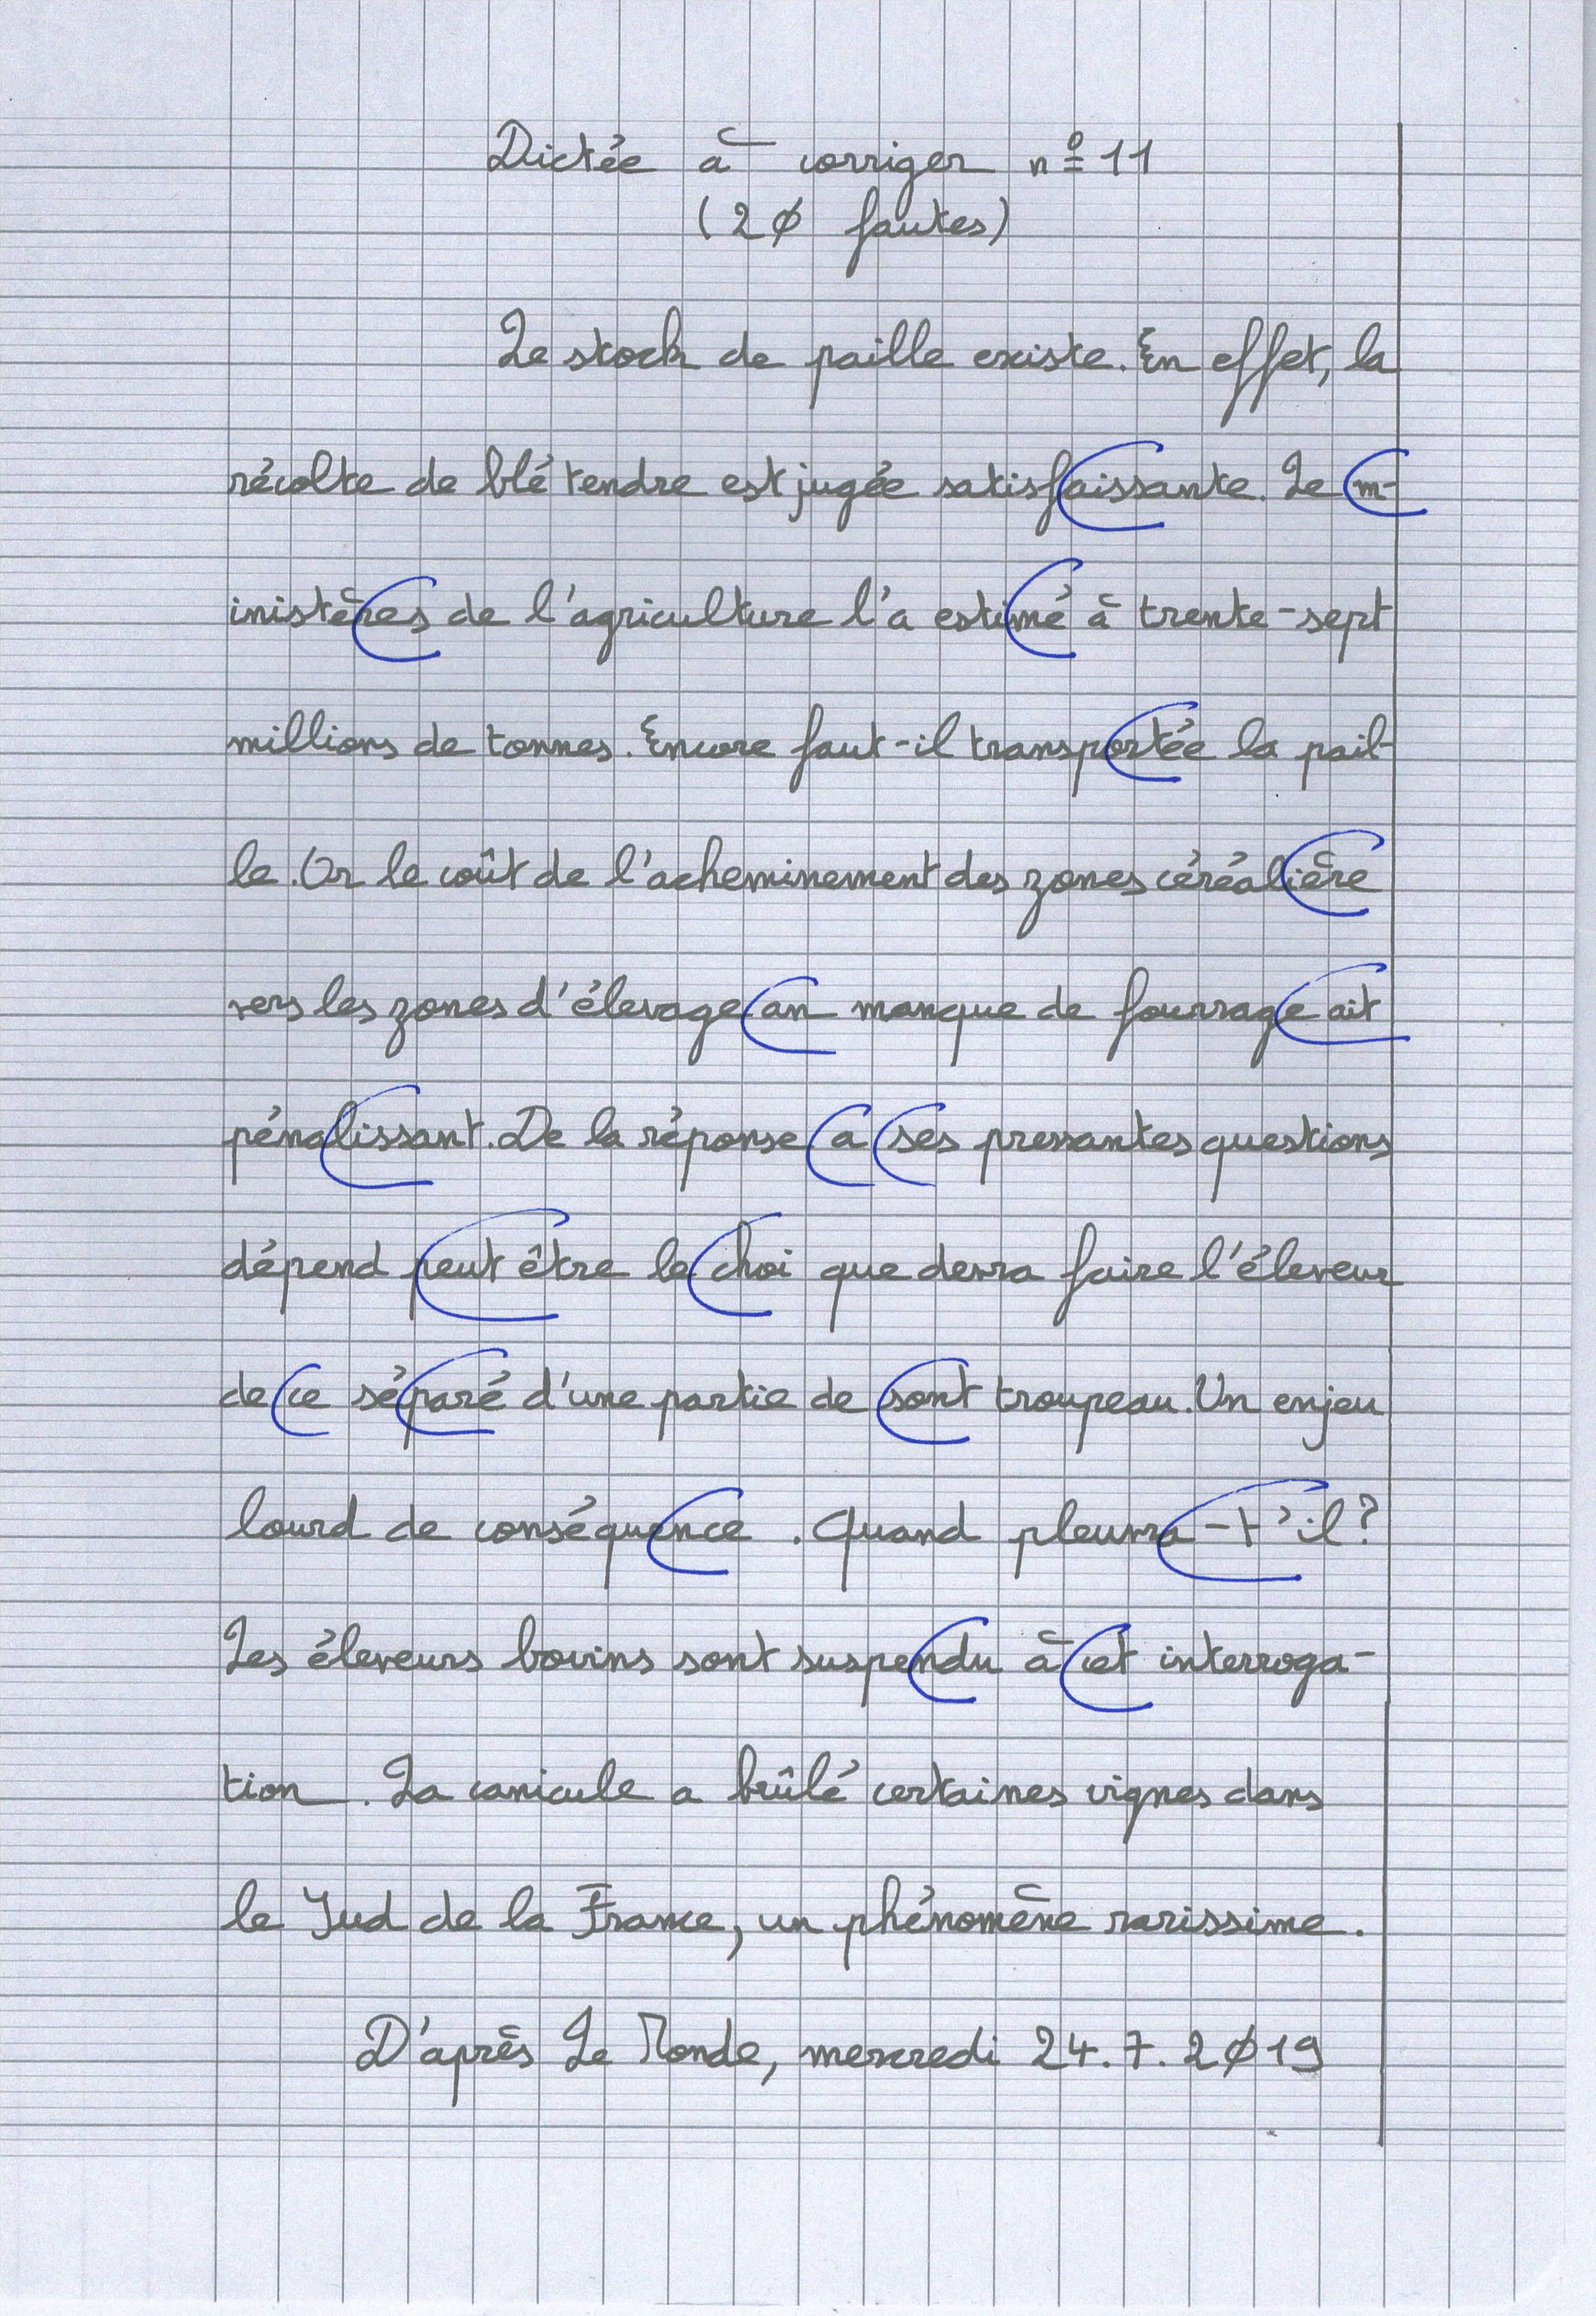 Dictée à corriger nº 11
(20 fautes)
Le stock de paille existe. En effet, la
récolte de blé tendre est jugée satisfaissante. Le m-
inistères de l'agriculture l'a estimé à trente-sept
millions de tonnes. Encore faut-il transportée la pail-
le. Or le coût de l'acheminement des zones céréalière
vers les zones d'élevage an manque de fourrage ait
pénalissant. De la réponse a ses pressantes questions
dépend peut être le choi que devra faire l'éleveur
de ce séparé d'une partie de sont troupeau. Un enjeu
lourd de conséquence . Quand pleuvra-t'il?
Les éleveurs bovins sont suspendu à cet interroga-
tion. La canicule a brûlé certaines vignes dans
le Sud de la France, un phénomène rarissime.
D'après Le Monde, mercredi 24.7.2019